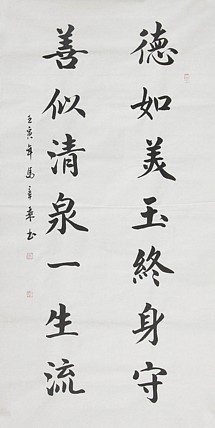 德如美玉終身守
善似清泉一生流
壬寅年馬